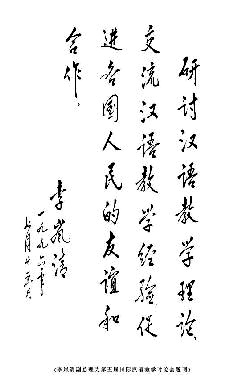 研讨汉语教学理论、
交流汉语教学经验、促
进各国人民的友谊和
合作。
李岚清
一九九六年
七月廿五日
(李岚清副总理为第五届国际汉语教学讨论会题词)